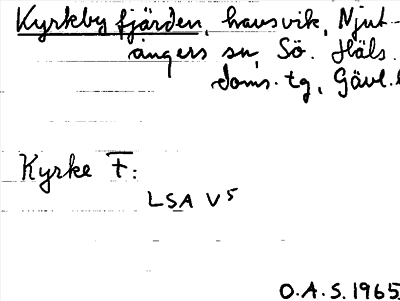 Kyrkby fjärden, havsvik, Njut-
ångers sn, Sö. Häls.
doms. tg, Gävl. l
Kyrke F:
LSA V5
O.A.S. 1965